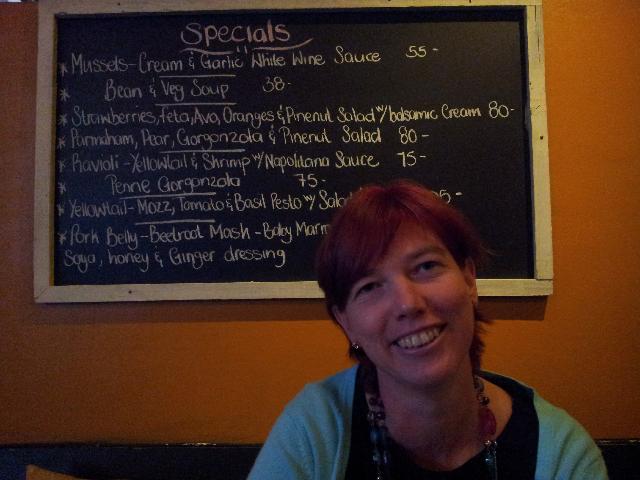 Specials
* Mussels-Cream & Garlic White Wine Sauce 55-
* Bean & Veg Soup 38-
Strawberries, Feta, Avo, Oranges & Pinenut Salad w/ balsamic Cream 80-
* Parmaham, Pear, Gorgonzola & Pinenut Salad 80-
* Ravioli-Yellowtail & Shrimp w/ Napolitana Sauce 75-
* Penne Gorgonzola 75-
* Yellowtail-Mozz, Tomato & Basil Pesto w/ Salad 5-
* Pork Belly-Beetroot Mash-Baby
Soya, honey & Ginger dressing